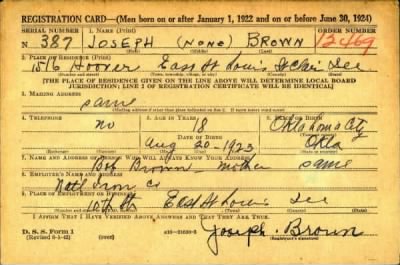 REGISTRATION CARD—(Men born on or after January 1, 1922 and on or before June 30, 1924)
SERIAL NUMBER 1. NAME (Print) ORDER NUMBER
N 387 JOSEPH (NONE) BROWN 12469
2. PLACE OF RESIDENCE (Print)
1516 Hoover East St Louis St Clair Ill
(Number and street) (Town, township, village, or city) (County) (State)
[THE PLACE OF RESIDENCE GIVEN ON THE LINE ABOVE WILL DETERMINE LOCAL BOARD
JURISDICTION; LINE 2 OF REGISTRATION CERTIFICATE WILL BE IDENTICAL]
3. MAILING ADDRESS
same
[Mailing address if other than place indicated on line 2. If same, insert word same]
4. TELEPHONE 5. AGE IN YEARS 6. PLACE OF BIRTH
no 18 Oklahoma City
DATE OF BIRTH
Aug 20-1923 Okla
7. NAME AND ADDRESS OF PERSON WHO WILL ALWAYS KNOW YOUR ADDRESS
Bob Brown - mother same
8. EMPLOYER'S NAME AND ADDRESS
Natl Iron Co
9. PLACE OF EMPLOYMENT OR BUSINESS
10th St East St Louis Ill
I AFFIRM THAT I HAVE VERIFIED ABOVE ANSWERS AND THAT THEY ARE TRUE.
D. S. S. Form 1
(Revised 6-5-42) (over) Joseph. Brown
(Registrant's signature)